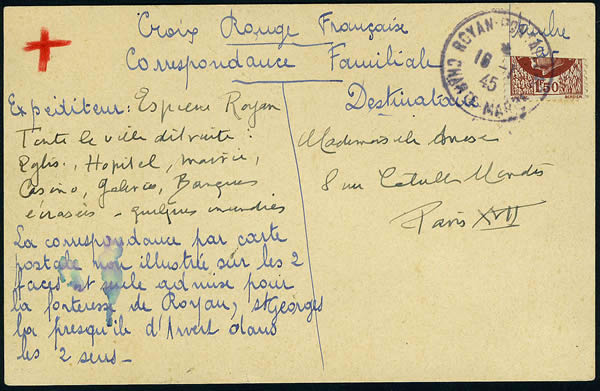 Croix Rouge Française
Correspondance Familiale
ROYAN-PON
16
45
1F50
Expéditeur: Royan
Toute la ville détruite:
Eglis., Hopital, mairie,
Casino, Galerie, Banques
écrasés - quelques incendies
La correspondance par carte
postale non illustrée sur les 2
faces est seule admise pour
la forteresse de Royan, St Georges
la presqu'ile d'Arvert dans
les 2 sens -
Destinataire
Mademoiselle
8 rue Catulle Mendès
Paris XVII